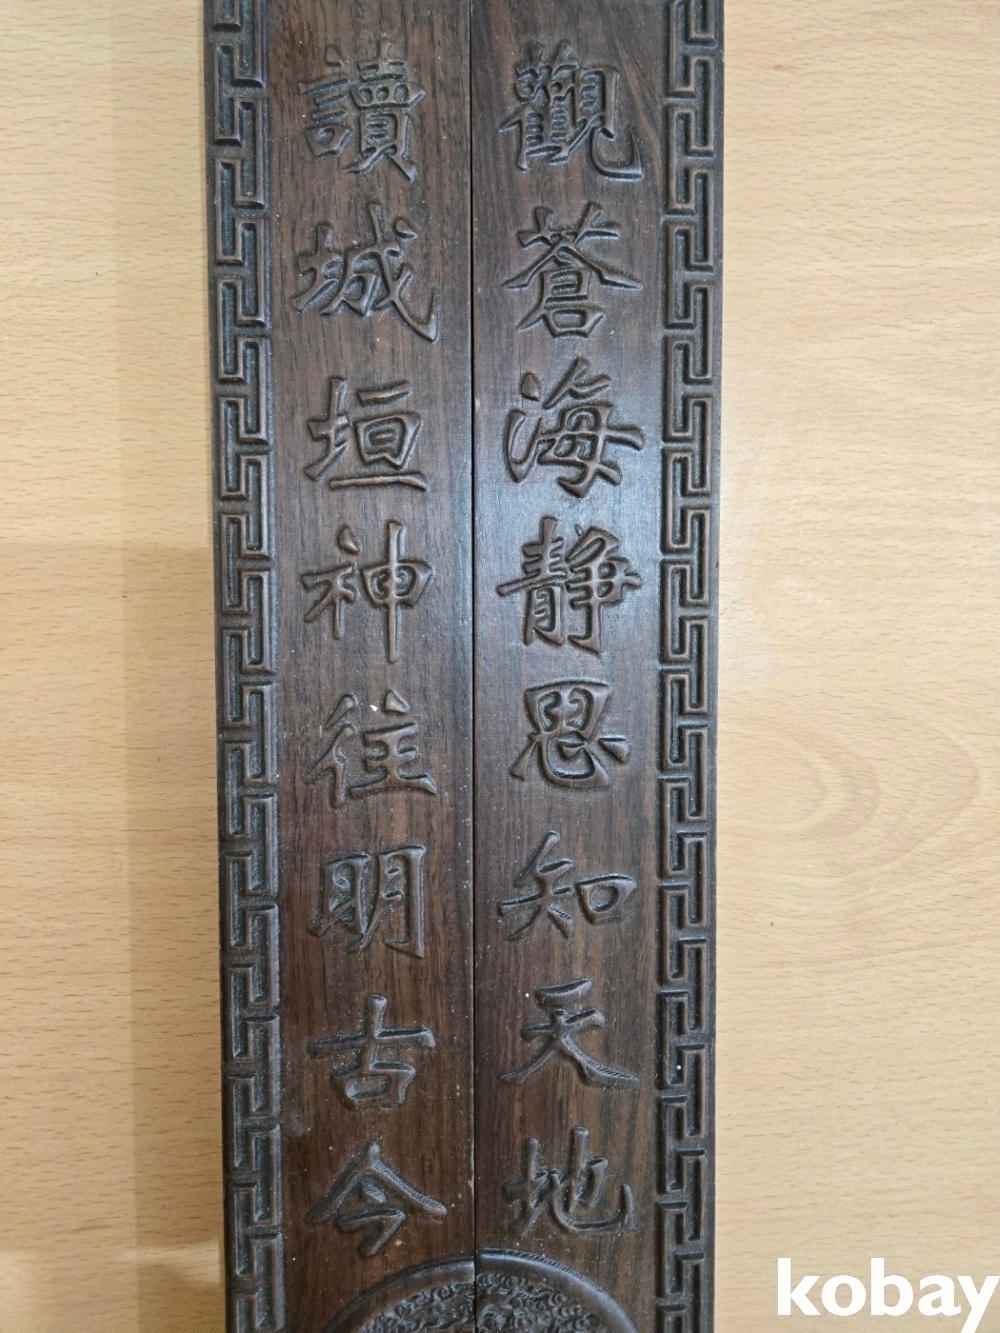 觀蒼海靜思知天地
讀城垣神往明古今
kobay